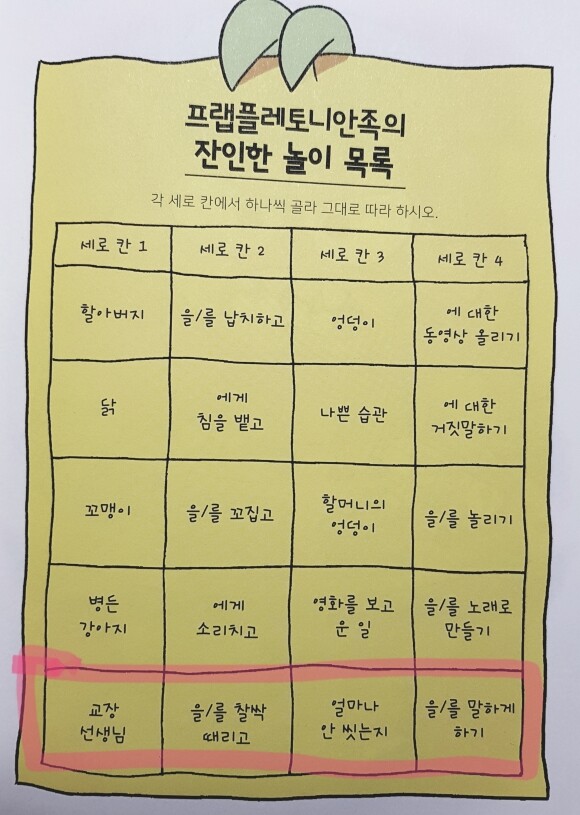 프랩플레토니안족의
잔인한 놀이 목록
각 세로 칸에서 하나씩 골라 그대로 따라 하시오.
세로 칸 1 세로 칸 2 세로 칸 3 세로 칸 4
할아버지 을/를 납치하고 엉덩이 에 대한
동영상 올리기
닭 에게
침을 뱉고 나쁜 습관 에 대한
거짓말하기
꼬맹이 을/를 꼬집고 할머니의
엉덩이 을/를 놀리기
병든
강아지 에게
소리치고 영화를 보고
운 일 을/를 노래로
만들기
교장
선생님 을/를 찰싹
때리고 얼마나
안 씻는지 을/를 말하게
하기